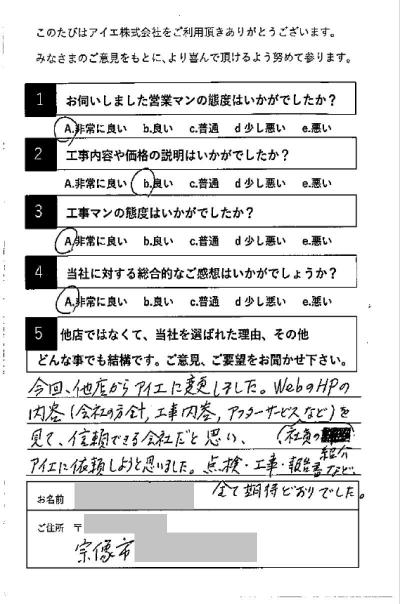 このたびはアイエ株式会社をご利用頂きありがとうございます。
みなさまのご意見をもとに、より喜んで頂けるよう努めて参ります。
1 お伺いしました営業マンの態度はいかがでしたか？
A.非常に良い b.良い c.普通 d 少し悪い e.悪い
2 工事内容や価格の説明はいかがでしたか？
A.非常に良い b.良い c.普通 d 少し悪い e.悪い
3 工事マンの態度はいかがでしたか？
A.非常に良い b.良い c.普通 d 少し悪い e.悪い
4 当社に対する総合的なご感想はいかがでしょうか？
A.非常に良い b.良い c.普通 d 少し悪い e.悪い
5 他店ではなくて、当社を選ばれた理由、その他
どんな事でも結構です。ご意見、ご要望をお聞かせ下さい。
今回、他店からアイエに変更しました。WebのHPの
内容（会社の方針，工事内容，アフターサービスなど）を
見て、信頼できる会社だと思い、（社員の
紹介
アイエに依頼しようと思いました。点検・工事・報告書など、
全て期待どおりでした。
お名前
ご住所 〒
宗像市